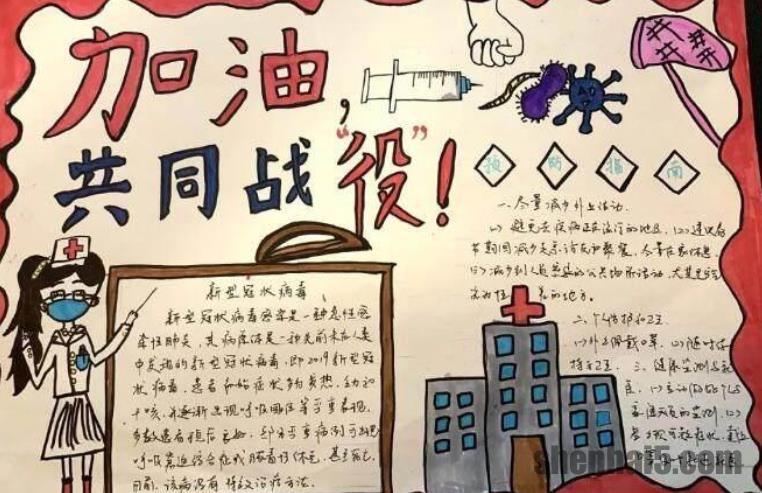 加油，
共同战“役”！
预防指南
一、尽量减少外出活动.
(1) 避免去疾病正在流行的地区. (2) 建议春
节期间减少走亲访友和聚餐，尽量在家休息.
(3) 减少到人员密集的公共场所活动，尤其是空
的地方。
二、个人防护和卫
(1) 外出佩戴口罩. (2) 随时保
持手卫 三、健康监测与
(1) 主动
的监测. (2)
可疑症状，
新型冠状病毒
新型冠状病毒感染是一种急性感
染性肺炎，其病原体是一种先前未在人类
中发现的新型冠状病毒，即2019新型冠
状病毒，患者初始症状多为发热、乏力和
干咳，并逐渐出现呼吸困难等严重表现.
多数患者预后良好，部分严重病例可出现
呼吸窘迫综合征或脓毒性休克，甚至死亡.
目前，该病没有特效治疗方法.
shenbai5.com